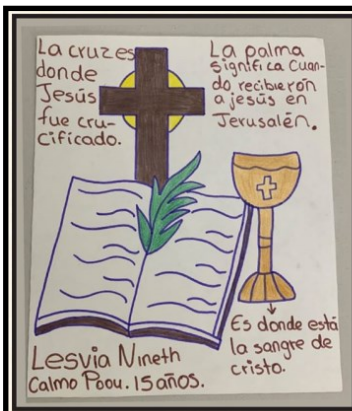 La cruz es
donde
Jesús
fue cru-
cificado.
La palma
significa Cuan-
do recibieron
a jesús en
Jerusalén.
Es donde está
la sangre de
cristo.
Lesvia Nineth
Calmo Poou. 15 años.